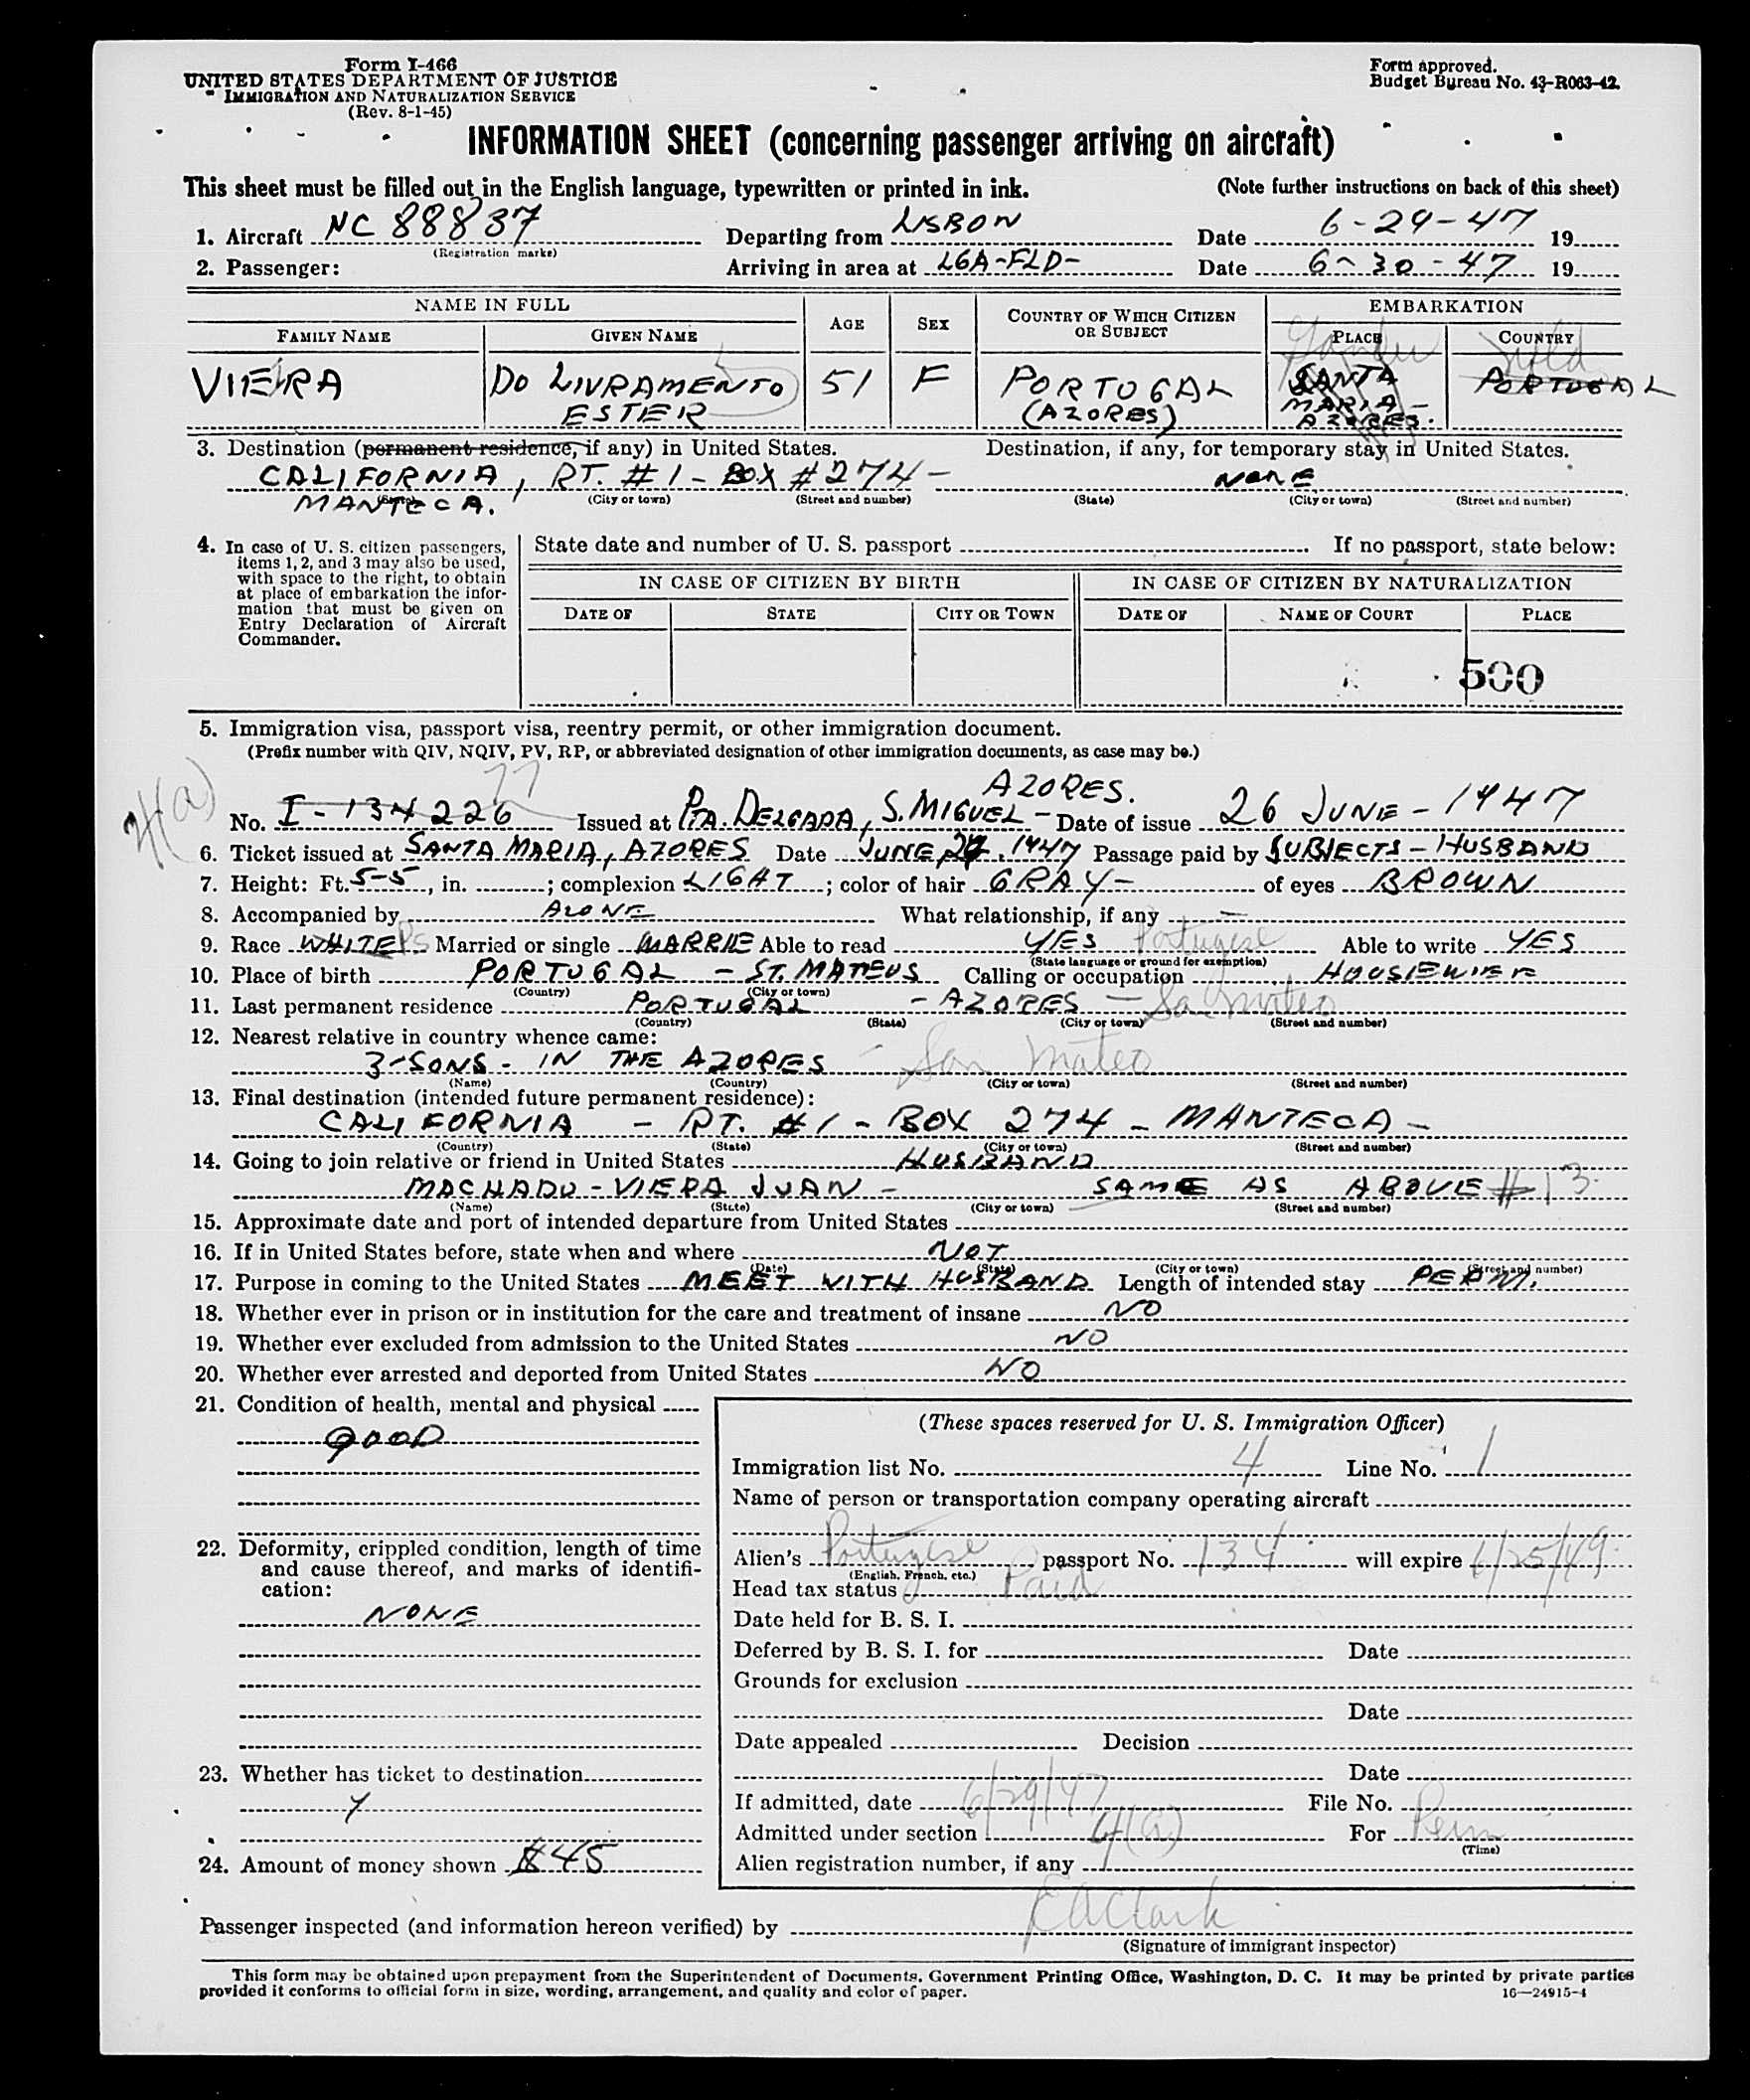 Form I-466
UNITED STATES DEPARTMENT OF JUSTICE
IMMIGRATION AND NATURALIZATION SERVICE
(Rev. 8-1-45)
Form approved.
Budget Bureau No. 43-R063-42.
INFORMATION SHEET (concerning passenger arriving on aircraft)
This sheet must be filled out in the English language, typewritten or printed in ink. (Note further instructions on back of this sheet)
1. Aircraft NC 88837 Departing from LISBON Date 6-29-47 19
(Registration marks)
2. Passenger: Arriving in area at LGA-FLD- Date 6-30-47 19
NAME IN FULL AGE SEX COUNTRY OF WHICH CITIZEN OR SUBJECT EMBARKATION
FAMILY NAME GIVEN NAME PLACE COUNTRY
Gander Nfld
VIEIRA DO LIVRAMENTO 51 F PORTUGAL SANTA PORTUGAL
ESTER (AZORES) MARIA-
AZORES.
3. Destination (permanent residence, if any) in United States. Destination, if any, for temporary stay in United States.
CALIFORNIA, RT. #1 - BOX #274 - NONE
(State) (City or town) (Street and number) (State) (City or town) (Street and number)
MANTECA.
4. In case of U. S. citizen passengers, items 1, 2, and 3 may also be used, with space to the right, to obtain at place of embarkation the information that must be given on Entry Declaration of Aircraft Commander.
State date and number of U. S. passport If no passport, state below:
IN CASE OF CITIZEN BY BIRTH IN CASE OF CITIZEN BY NATURALIZATION
DATE OF STATE CITY OR TOWN DATE OF NAME OF COURT PLACE
500
5. Immigration visa, passport visa, reentry permit, or other immigration document.
(Prefix number with QIV, NQIV, PV, RP, or abbreviated designation of other immigration documents, as case may be.)
4(a) 77 AZORES.
No. I-134226 Issued at PTA. DELGADA, S. MIGUEL - Date of issue 26 JUNE - 1947
6. Ticket issued at SANTA MARIA, AZORES Date JUNE, 27, 1947 Passage paid by SUBJECTS - HUSBAND
7. Height: Ft. 5-5, in. ; complexion LIGHT; color of hair GRAY- of eyes BROWN
8. Accompanied by ALONE What relationship, if any -
9. Race WHITE Ps Married or single MARRIE Able to read YES Portugese Able to write YES
(State language or ground for exemption)
10. Place of birth PORTUGAL - ST. MATEUS Calling or occupation HOUSIEWIFE
(Country) (City or town)
11. Last permanent residence PORTUGAL - AZORES - Sa mateo
(Country) (State) (City or town) (Street and number)
12. Nearest relative in country whence came:
3-SONS - IN THE AZORES - San mateo
(Name) (Country) (City or town) (Street and number)
13. Final destination (intended future permanent residence):
CALIFORNIA - RT. #1 - BOX 274 - MANTECA -
(Country) (State) (City or town) (Street and number)
14. Going to join relative or friend in United States HUSBAND
MACHADO - VIERA JUAN - SAME AS ABOVE #13
(Name) (State) (City or town) (Street and number)
15. Approximate date and port of intended departure from United States
16. If in United States before, state when and where NOT
(Date) (State) (City or town) (Street and number)
17. Purpose in coming to the United States MEET WITH HUSBAND Length of intended stay PERM.
18. Whether ever in prison or in institution for the care and treatment of insane NO
19. Whether ever excluded from admission to the United States NO
20. Whether ever arrested and deported from United States NO
21. Condition of health, mental and physical
GOOD
22. Deformity, crippled condition, length of time and cause thereof, and marks of identification:
NONE
23. Whether has ticket to destination
Y
24. Amount of money shown $45
(These spaces reserved for U. S. Immigration Officer)
Immigration list No. 4 Line No. 1
Name of person or transportation company operating aircraft
Alien's Portugese passport No. 134 will expire 6/25/49
(English, French, etc.)
Head tax status Paid
Date held for B. S. I.
Deferred by B. S. I. for Date
Grounds for exclusion
Date
Date appealed Decision
Date
If admitted, date 6/29/47 File No.
Admitted under section 4(a) For Perm
(Time)
Alien registration number, if any
Passenger inspected (and information hereon verified) by EAClark
(Signature of immigrant inspector)
This form may be obtained upon prepayment from the Superintendent of Documents, Government Printing Office, Washington, D. C. It may be printed by private parties
provided it conforms to official form in size, wording, arrangement, and quality and color of paper. 16—24915-1